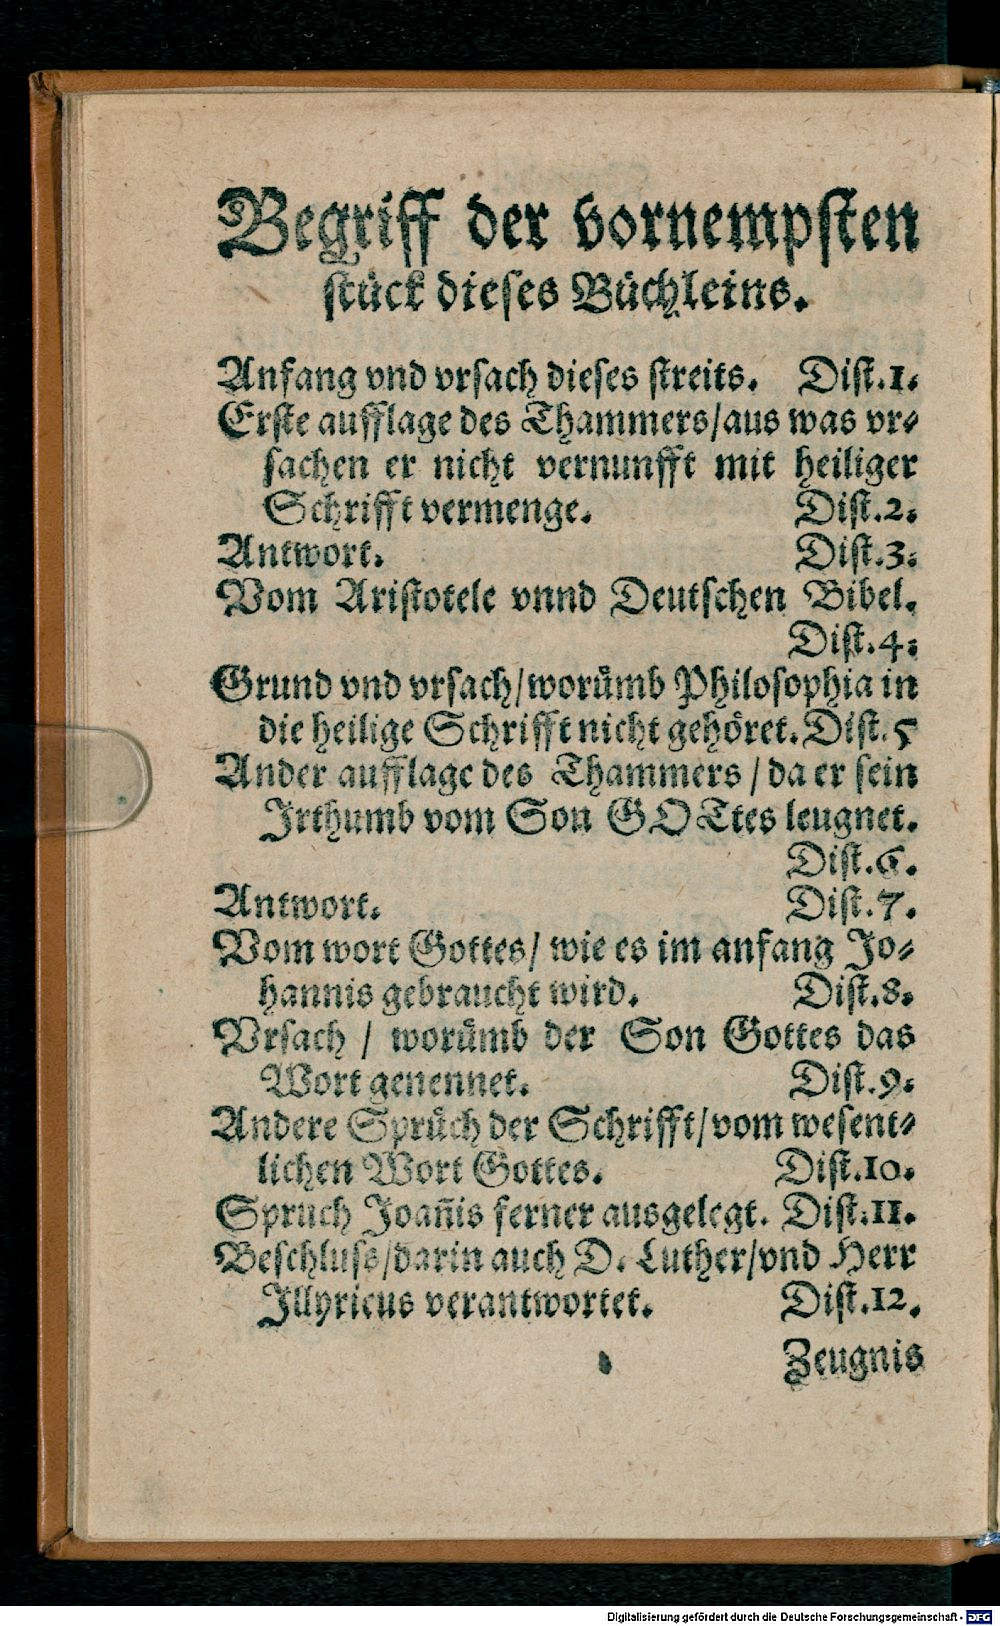 Begriff der vornempsten
stück dieses Büchleins.
Anfang vnd vrsach dieses streits. Dist.1.
Erste aufflage des Thammers/aus was vr-
sachen er nicht vernunfft mit heiliger
Schrifft vermenge. Dist.2.
Antwort. Dist.3.
Vom Aristotele vnnd Deutschen Bibel.
Dist.4.
Grund vnd vrsach/worümb Philosophia in
die heilige Schrifft nicht gehöret. Dist.5
Ander aufflage des Thammers / da er sein
Irthumb vom Son GOTtes leugnet.
Dist.6.
Antwort. Dist.7.
Vom wort Gottes/ wie es im anfang Jo-
hannis gebraucht wird. Dist.8.
Vrsach / worümb der Son Gottes das
Wort genennet. Dist.9.
Andere Sprüch der Schrifft/vom wesent-
lichen Wort Gottes. Dist.10.
Spruch Joan̄is ferner ausgelegt. Dist.11.
Beschluss/darin auch D. Luther/vnd Herr
Illyricus verantwortet. Dist.12.
Zeugnis
Digitalisierung gefördert durch die Deutsche Forschungsgemeinschaft - DFG